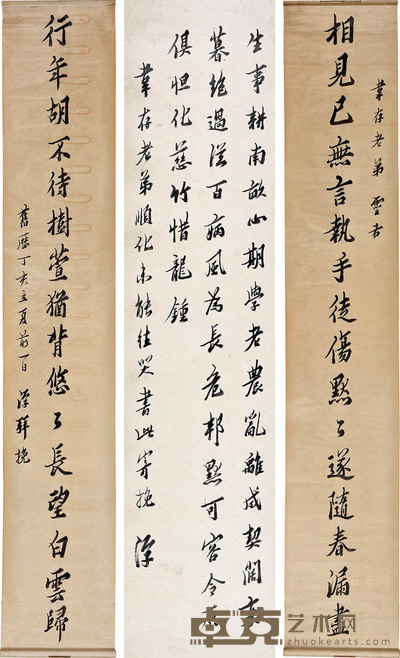 葦存老弟 靈右
相見已無言執手徒傷黯〻遂隨春漏盡
生事耕南畝心期學老農亂離成契闊衰
暮絶過從百病風為長危邦默可容令
俱怛化慈竹惜龍鍾
葦存老弟順化未能往哭書此寄挽 淳
行年胡不待樹萱猶背悠〻長望白雲歸
舊曆丁亥立夏前一日 淳拜挽
卓克艺术网
zhuokearts.com